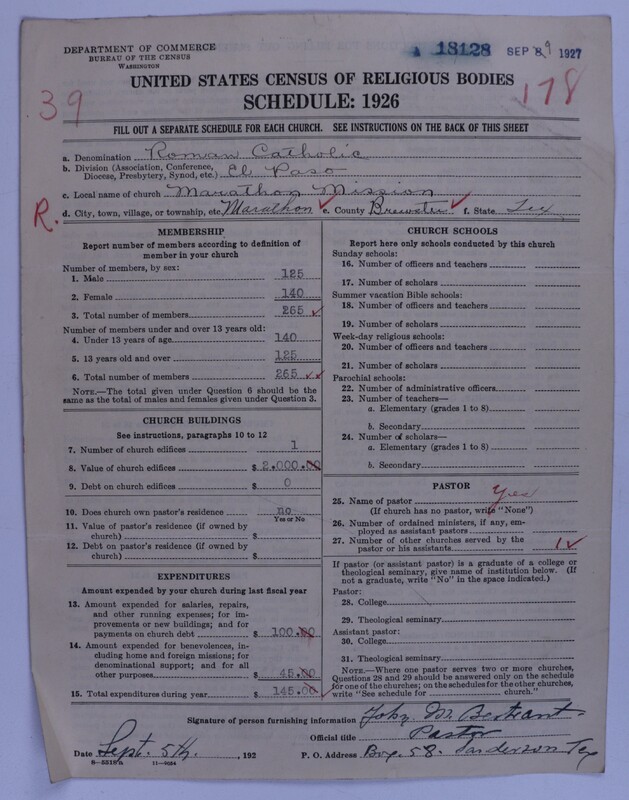 DEPARTMENT OF COMMERCE
BUREAU OF THE CENSUS
WASHINGTON
A 18128 SEP 9 1927
UNITED STATES CENSUS OF RELIGIOUS BODIES
SCHEDULE: 1926
39
178
FILL OUT A SEPARATE SCHEDULE FOR EACH CHURCH. SEE INSTRUCTIONS ON THE BACK OF THIS SHEET
a. Denomination Roman Catholic
b. Division (Association, Conference,
Diocese, Presbytery, Synod, etc.) El Paso
c. Local name of church Marathon Mission
R. d. City, town, village, or township, etc. Marathon e. County Brewster f. State Tex
MEMBERSHIP
Report number of members according to definition of
member in your church
Number of members, by sex:
1. Male 125
2. Female 140
3. Total number of members 265
Number of members under and over 13 years old:
4. Under 13 years of age 140
5. 13 years old and over 125
6. Total number of members 265
NOTE.—The total given under Question 6 should be
same as the total of males and females given under Question 3.
CHURCH BUILDINGS
See instructions, paragraphs 10 to 12
7. Number of church edifices 1
8. Value of church edifices $ 2.000.00
9. Debt on church edifices $ 0
10. Does church own pastor's residence no
Yes or No
11. Value of pastor's residence (if owned by
church) $
12. Debt on pastor's residence (if owned by
church) $
EXPENDITURES
Amount expended by your church during last fiscal year
13. Amount expended for salaries, repairs,
and other running expenses; for im-
provements or new buildings; and for
payments on church debt $ 100.00
14. Amount expended for benevolences, in-
cluding home and foreign missions; for
denominational support; and for all
other purposes $ 45.00
15. Total expenditures during year $ 145.00
CHURCH SCHOOLS
Report here only schools conducted by this church
Sunday schools:
16. Number of officers and teachers
17. Number of scholars
Summer vacation Bible schools:
18. Number of officers and teachers
19. Number of scholars
Week-day religious schools:
20. Number of officers and teachers
21. Number of scholars
Parochial schools:
22. Number of administrative officers
23. Number of teachers—
a. Elementary (grades 1 to 8)
b. Secondary
24. Number of scholars—
a. Elementary (grades 1 to 8)
b. Secondary
PASTOR
25. Name of pastor Yes
(If church has no pastor, write "None")
26. Number of ordained ministers, if any, em-
ployed as assistant pastors
27. Number of other churches served by the
pastor or his assistants 1
If pastor (or assistant pastor) is a graduate of a college or
theological seminary, give name of institution below. (If
not a graduate, write "No" in the space indicated.)
Pastor:
28. College
29. Theological seminary
Assistant pastor:
30. College
31. Theological seminary
NOTE.—Where one pastor serves two or more churches,
Questions 28 and 29 should be answered only on the schedule
for one of the churches; on the schedules for the other churches,
write "See schedule for church."
Signature of person furnishing information John M. Bertrant
Official title Pastor
Date Sept. 5th, 192 P. O. Address Box 58. Sanderson Tex
8—5518a 11—9024